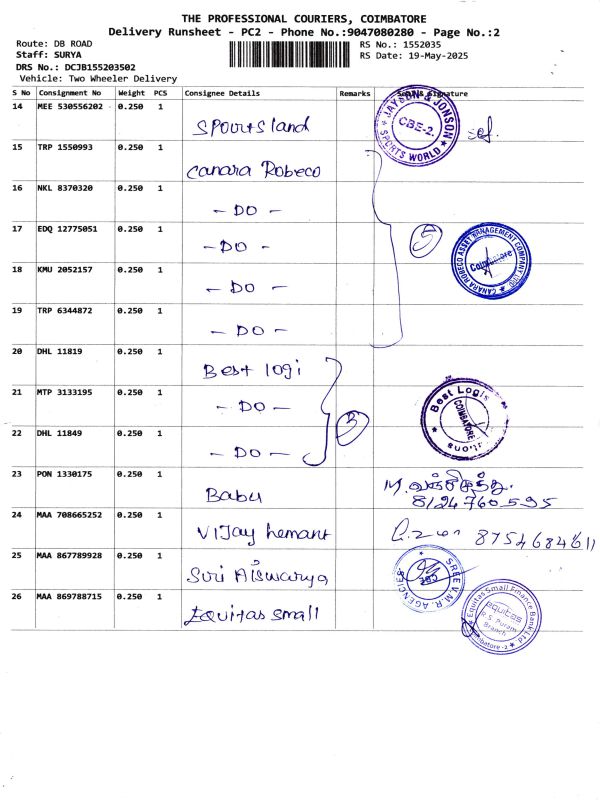 THE PROFESSIONAL COURIERS, COIMBATORE
Delivery Runsheet - PC2 - Phone No.:9047080280 - Page No.:2
Route: DB ROAD
Staff: SURYA
DRS No.: DCJB155203502
Vehicle: Two Wheeler Delivery
RS No.: 1552035
RS Date: 19-May-2025
S No Consignment No Weight PCS Consignee Details Remarks Signature
14 MEE 530556202 0.250 1 Spourtsland
JAYSON & JONSON SPORTS WORLD CBE-2.
15 TRP 1550993 0.250 1 Canara Robeco
16 NKL 8370320 0.250 1 - DO -
17 EDQ 12775051 0.250 1 - DO - 5
CANARA ROBECO ASSET MANAGEMENT COMPANY LTD Coimbatore
18 KMU 2052157 0.250 1 - DO -
19 TRP 6344872 0.250 1 - DO -
20 DHL 11819 0.250 1 Best logi
21 MTP 3133195 0.250 1 - DO - 3
Best Logis COIMBATORE
22 DHL 11849 0.250 1 - DO -
23 PON 1330175 0.250 1 Babu
8124760595
24 MAA 708665252 0.250 1 Vijay hemant 8754684611
25 MAA 867789928 0.250 1 Suri Aiswarya
SREE V.M.R. AGENCIES
26 MAA 869788715 0.250 1 Equitas small
Equitas Small Finance Bank Ltd equitas R.S. Puram Branch Coimbatore - 2